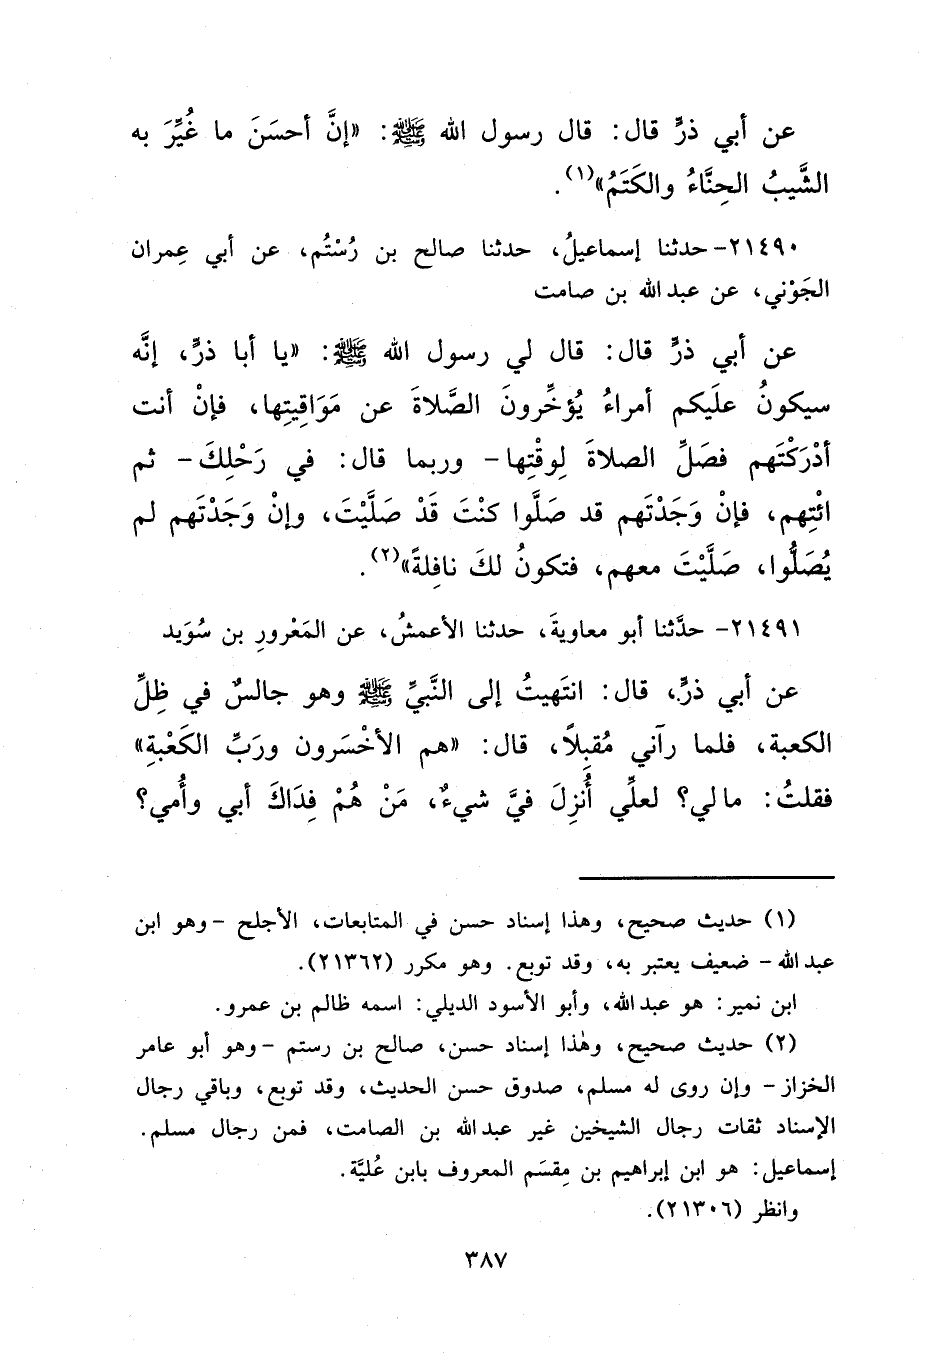 عن أبي ذرٍّ قال: قال رسول الله ﷺ: «إنَّ أحسَنَ ما غُيِّرَ به
الشَّيبُ الحِنَّاءُ والكَتَمُ»(١).
٢١٤٩٠- حدثنا إسماعيلُ، حدثنا صالح بن رُسْتُم، عن أبي عِمران
الجَوْني، عن عبدالله بن صامت
عن أبي ذرٍّ قال: قال لي رسول الله ﷺ: «يا أبا ذرٍّ، إنَّه
سيكونُ علَيكم أمراءُ يُؤخِّرونَ الصَّلاةَ عن مَوَاقِيتِها، فإنْ أنت
أدْرَكْتَهم فصَلِّ الصلاةَ لِوقْتِها- وربما قال: في رَحْلِكَ- ثم
ائْتِهم، فإنْ وَجَدْتَهم قد صَلَّوا كنْتَ قَدْ صَلَّيْتَ، وإنْ وَجَدْتَهم لم
يُصَلُّوا، صَلَّيْتَ معهم، فتكونُ لكَ نافِلةً»(٢).
٢١٤٩١- حدَّثنا أبو معاويةَ، حدثنا الأعمشُ، عن المَعْرورِ بن سُوَيد
عن أبي ذرٍّ، قال: انتَهيتُ إلى النَّبيِّ ﷺ وهو جالسٌ في ظِلِّ
الكعبة، فلما رآني مُقبِلاً، قال: «هم الأخْسَرون ورَبِّ الكَعْبةِ»
فقلتُ: مالي؟ لعلِّي أُنزِلَ فيَّ شيءٌ، مَنْ هُمْ فِدَاكَ أبي وأُمي؟
(١) حديث صحيح، وهذا إسناد حسن في المتابعات، الأجلح -وهو ابن
عبدالله- ضعيف يعتبر به، وقد توبع. وهو مكرر (٢١٣٦٢).
ابن نمير: هو عبدالله، وأبو الأسود الديلي: اسمه ظالم بن عمرو.
(٢) حديث صحيح، وهٰذا إسناد حسن، صالح بن رستم -وهو أبو عامر
الخزاز- وإن روى له مسلم، صدوق حسن الحديث، وقد توبع، وباقي رجال
الإسناد ثقات رجال الشيخين غير عبدالله بن الصامت، فمن رجال مسلم.
إسماعيل: هو ابن إبراهيم بن مِقسَم المعروف بابن عُليَّة.
وانظر (٢١٣٠٦).
٣٨٧